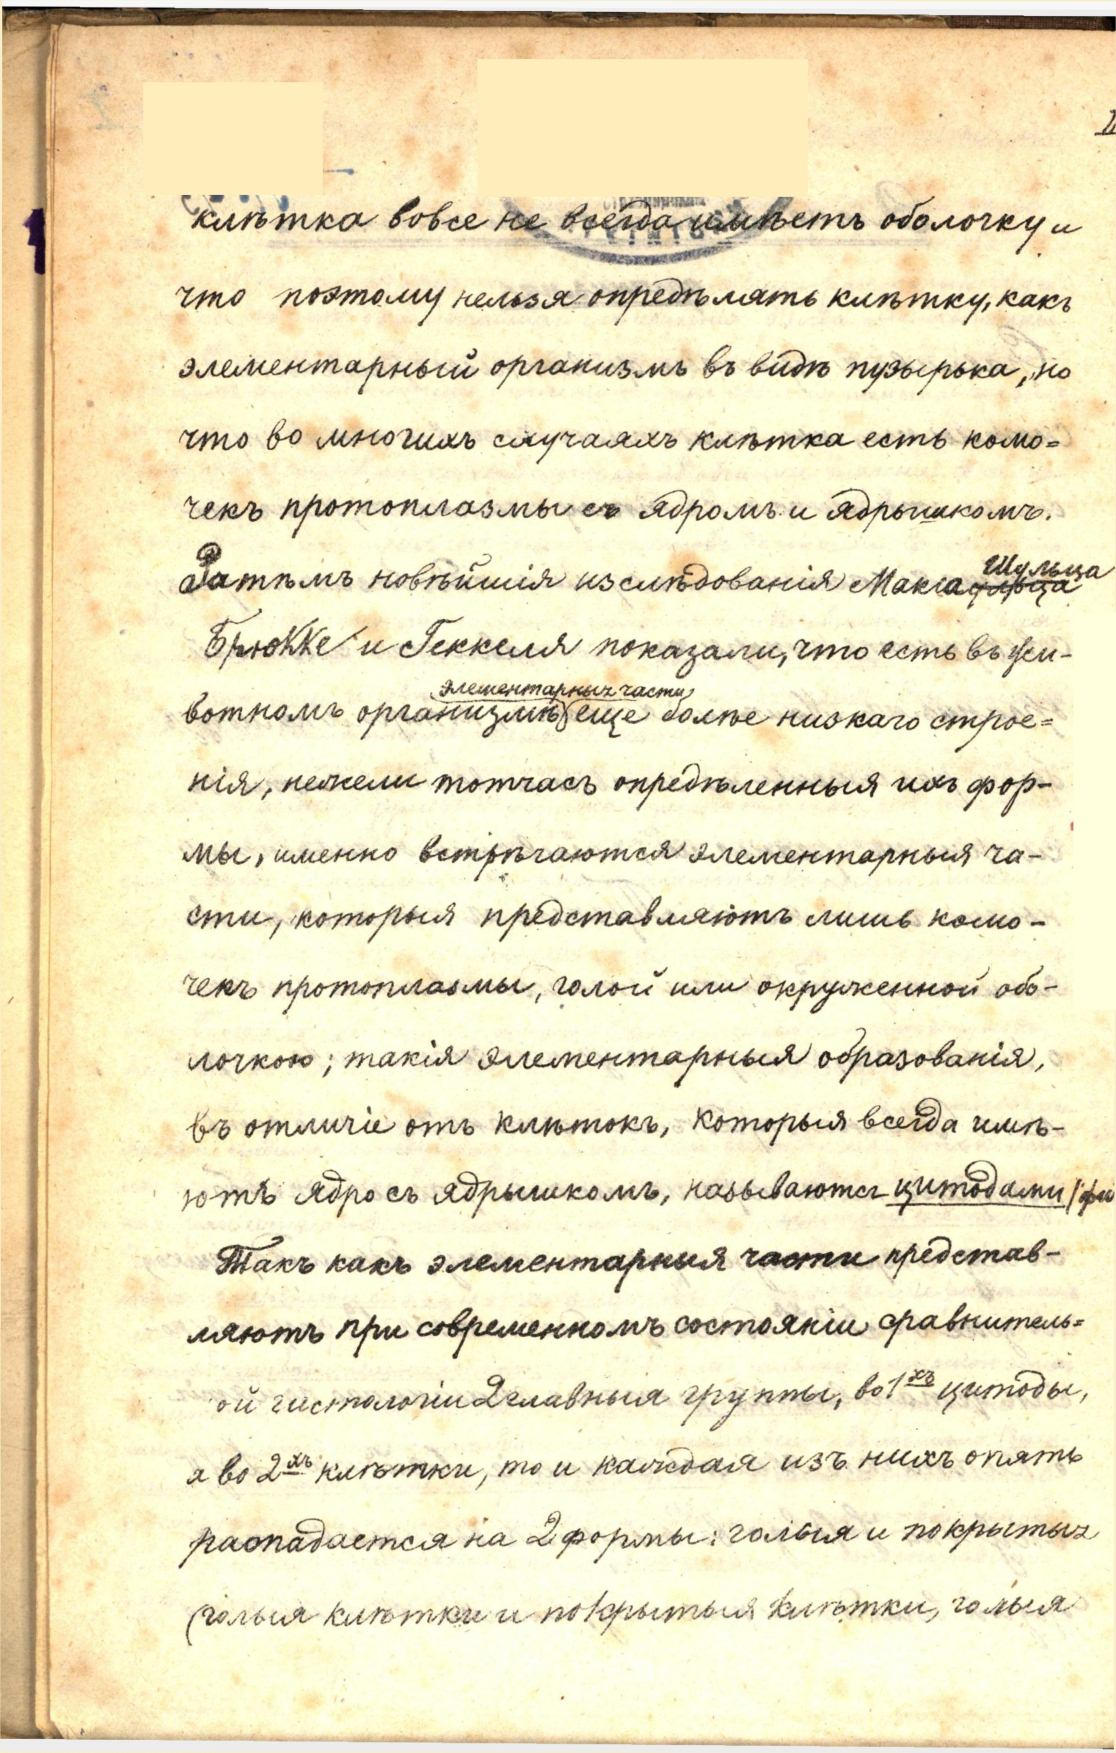 клѣтка вовсе не всегда имѣетъ оболочку и
что поэтому нельзя опредѣлять клѣтку, какъ
элементарный организмъ въ видѣ пузырька, но
что во многихъ случаяхъ клѣтка есть комо=
чекъ протоплазмы съ ядромъ и ядрышкомъ.
Шульца
Затѣмъ новѣйшія изслѣдованія Макса
Брюкке и Геккеля показали, что есть въ жи-
элементарныя части
вотномъ организмѣ еще болѣе низкаго строе=
нія, нежели тотчасъ опредѣленныя ихъ фор-
мы, именно встрѣчаются элементарныя ча-
сти, которыя представляютъ лишь комо-
чекъ протоплазмы, голой или окруженной обо-
лочкою; такія элементарныя образованія,
въ отличіе отъ клѣтокъ, которыя всегда имѣ-
ютъ ядро съ ядрышкомъ, называются цитодами
Такъ какъ элементарныя части представ-
ляютъ при современномъ состояніи сравнитель=
ой гистологіи 2 главныя группы, во 1хъ цитоды,
а во 2хъ клѣтки, то и каждая изъ нихъ опять
распадается на 2 формы: голыя и покрытыя
(голыя клѣтки и покрытыя клѣтки, голыя